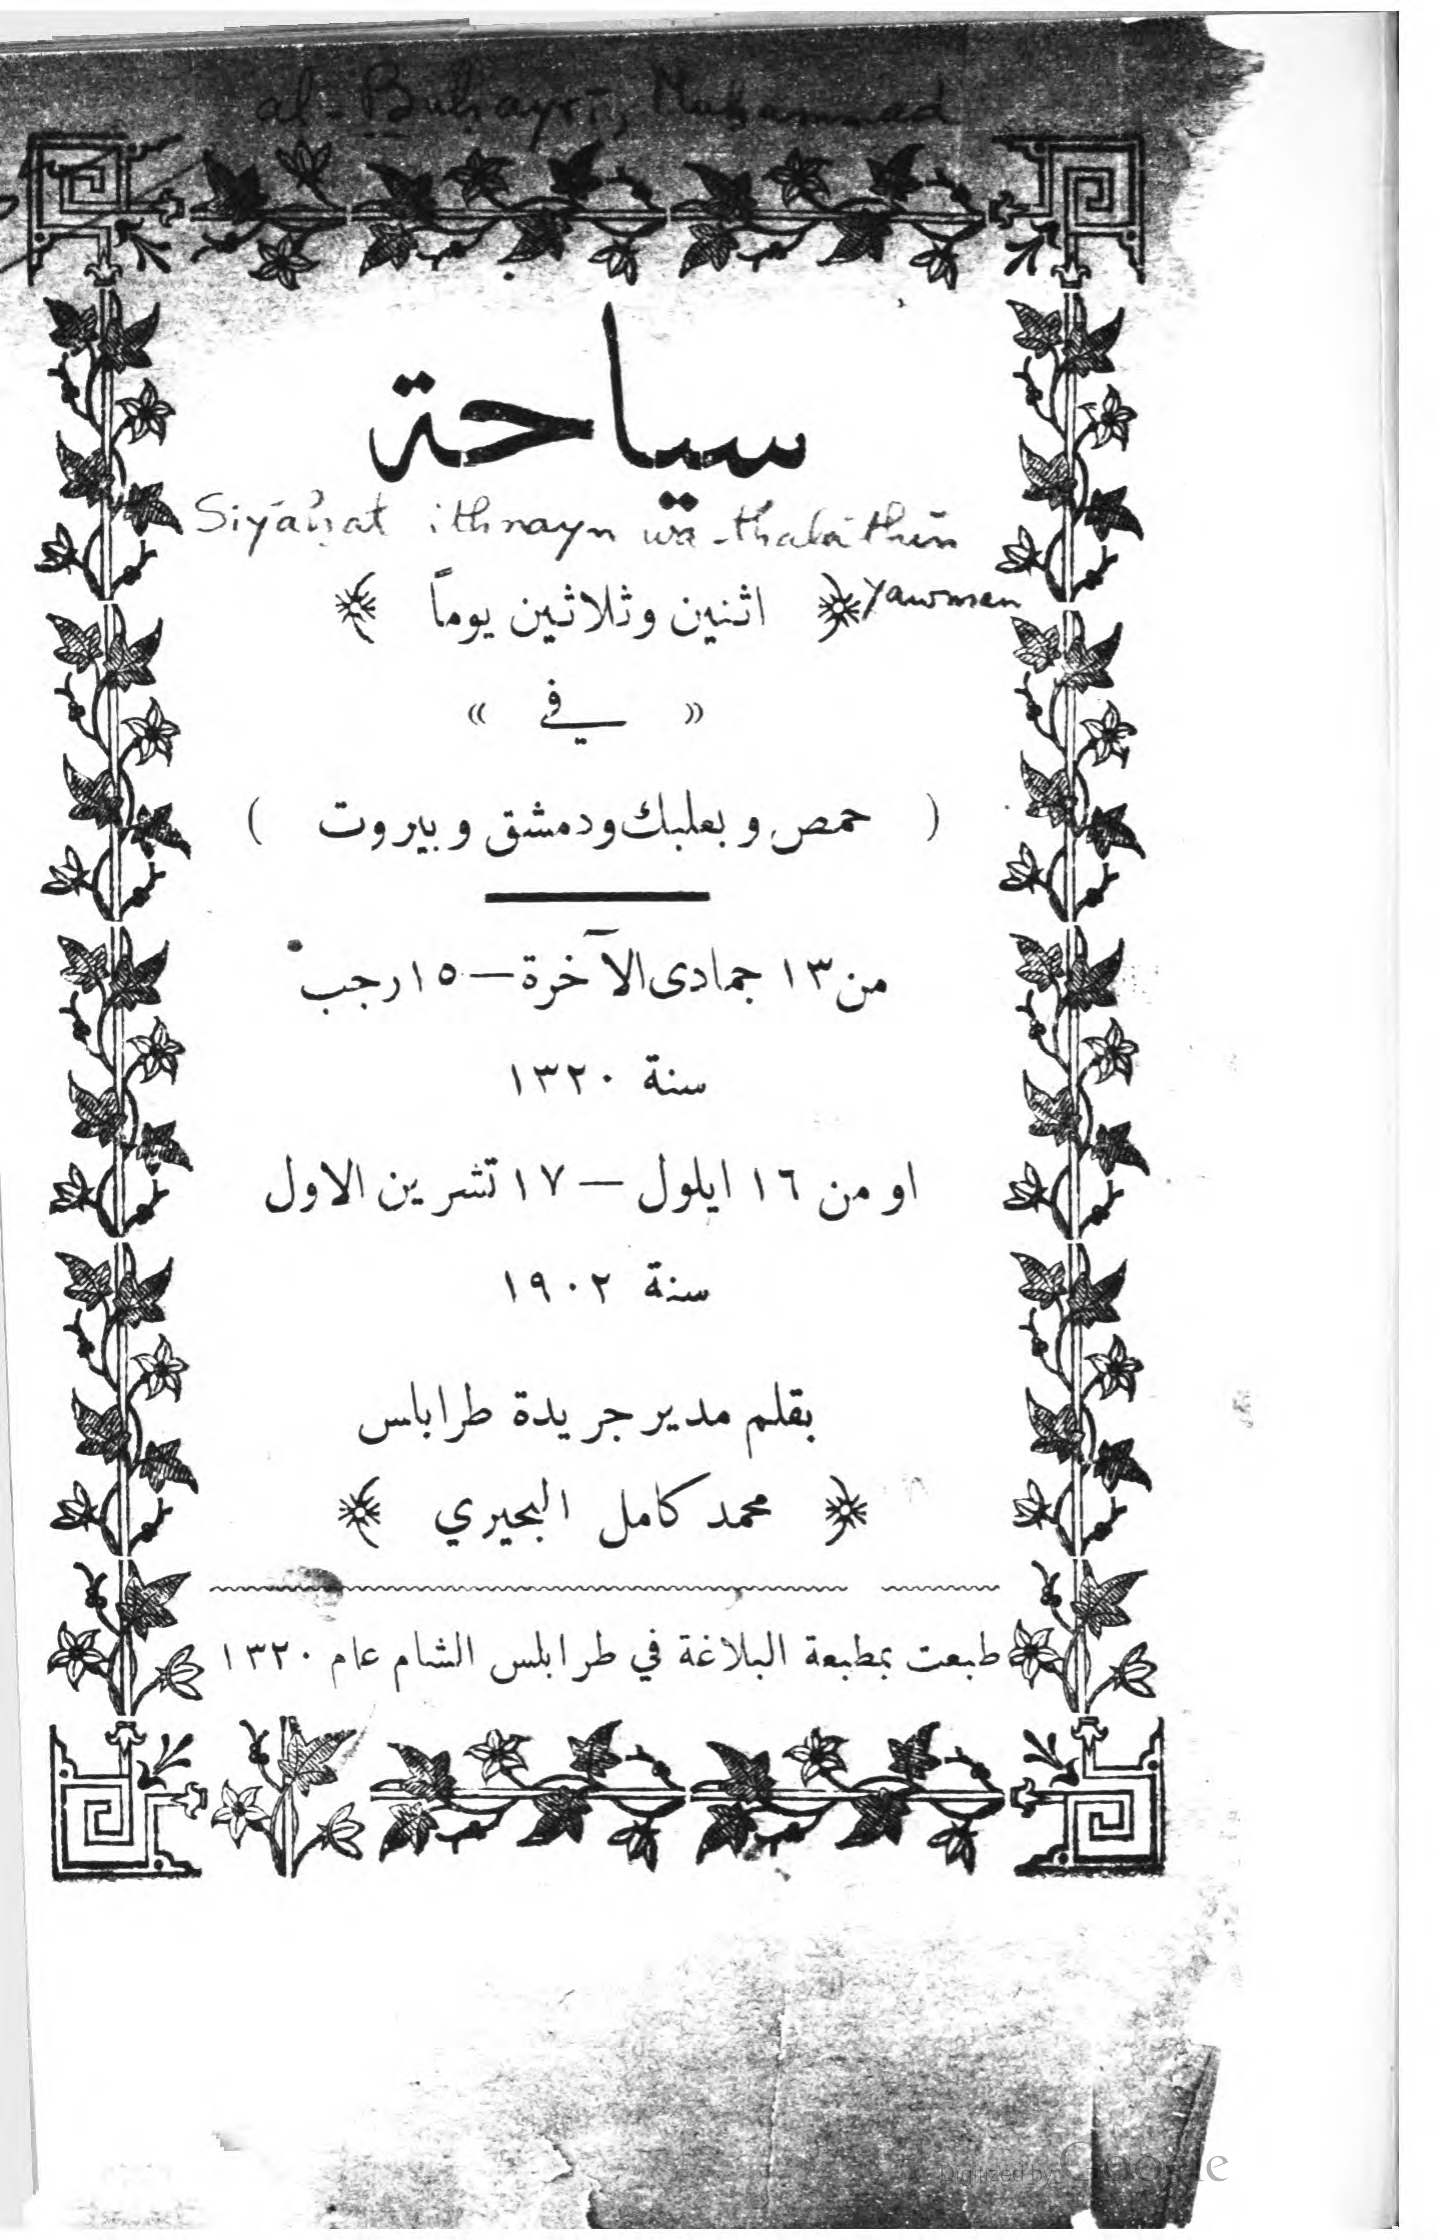 al-Buḥayrī, Muḥammad
سياحة
Siyāḥat ithnayn wa-thalāthīn
yawman
اثنين وثلاثين يوماً
« في »
( حمص وبعلبك ودمشق وبيروت )
من ١٣ جمادى الآخرة — ١٥ رجب
سنة ١٣٢٠
او من ١٦ ايلول — ١٧ تشرين الاول
سنة ١٩٠٢
بقلم مدير جريدة طرابلس
محمد كامل البحيري
طبعت بمطبعة البلاغة في طرابلس الشام عام ١٣٢٠
Digitized by Google